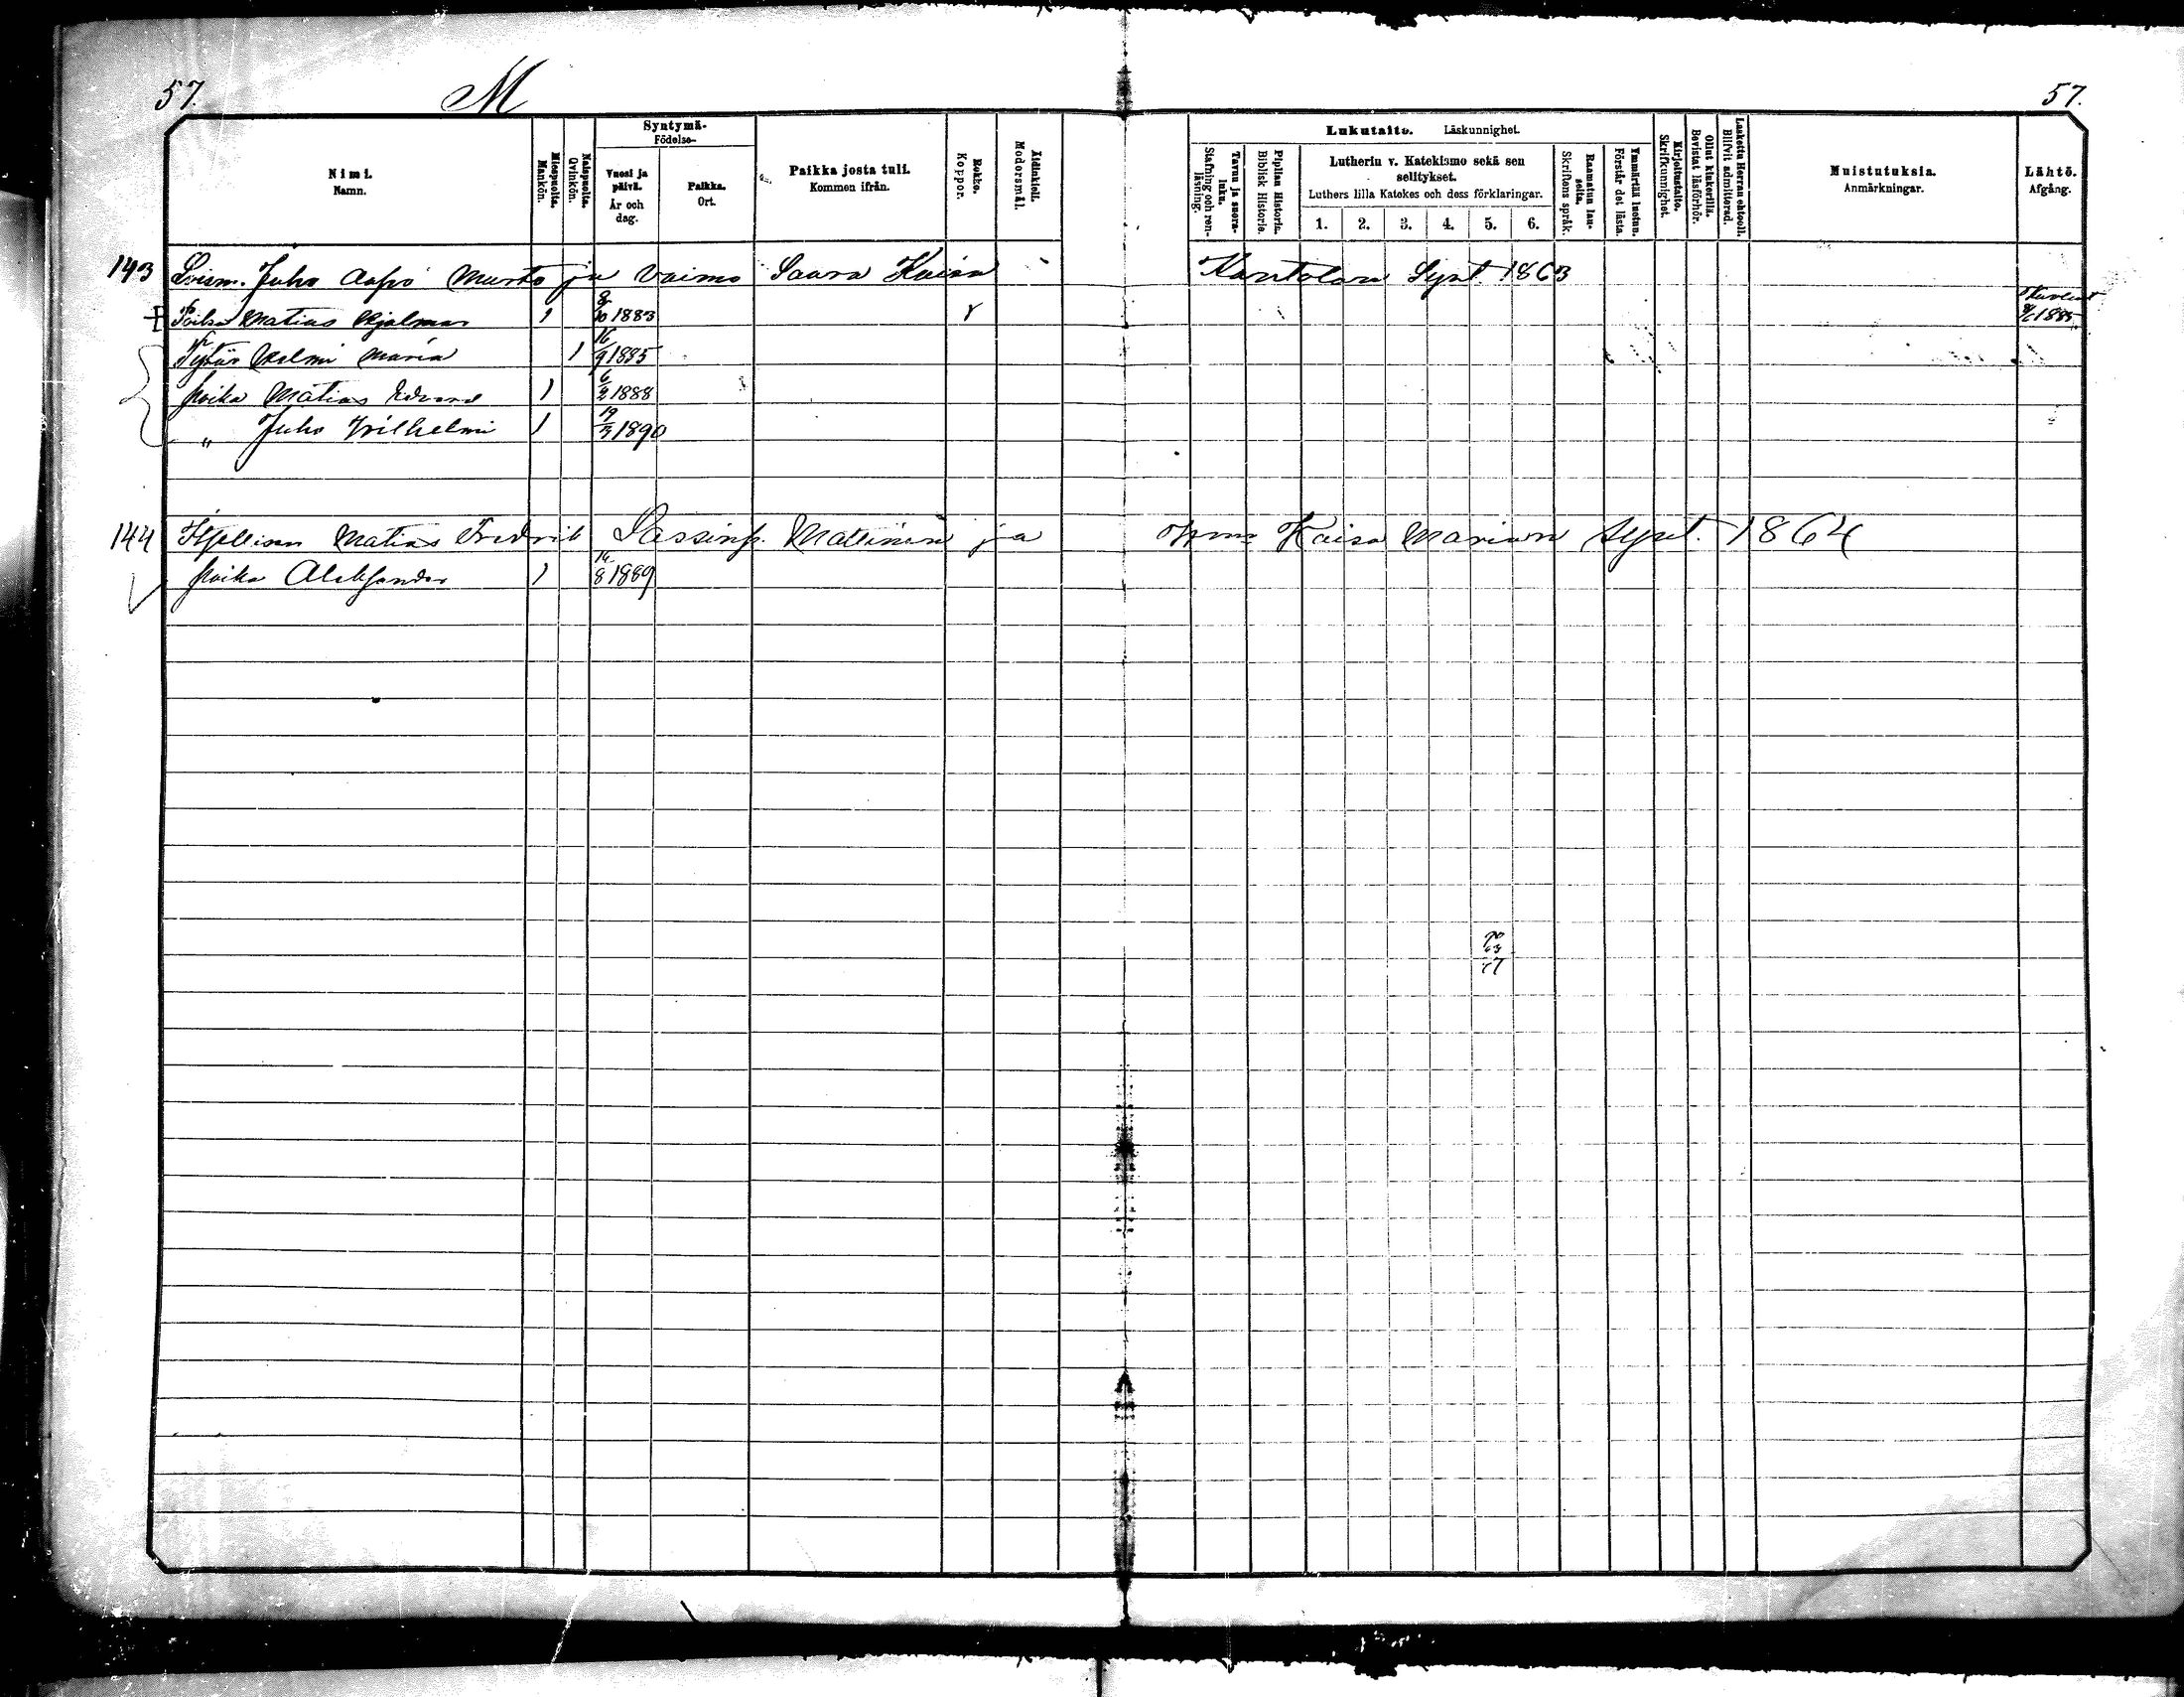 57.
M
57.
Nimi.
Namn.
Miespuolia.
Mankön.
Naispuolia.
Qvinkön.
Syntymä-
Födelse-
Vuosi ja
päivä.
År och
dag.
Paikka.
Ort.
Paikka josta tuli.
Kommen ifrån.
Rokko.
Koppor.
Äidinkieli.
Modersmål.
Lukutaito. Läskunnighet.
Tavuu ja suora-
luku.
Stafning och ren-
läsning.
Piplian Historia.
Biblisk Historie.
Lutheriu v. Katekismo sekä sen
selitykset.
Luthers lilla Katekes och dess förklaringar.
1. 2. 3. 4. 5. 6.
Raamatun lau-
seita.
Skriftens språk.
Ymmärtää luetun.
Förstår det lästa.
Kirjoitustaito.
Skrifkunnighet.
Ollut kinkerillä.
Bevistat läsförhör.
Laskettu Herran ehtooll.
Blifvit admitterad.
Muistutuksia.
Anmärkningar.
Lähtö.
Afgång.
143 Juho Aapo Murto ja vaimo Saara Kaisa Kantolan Synt. 1863
Poika Matias Hjalmar 1 8/10 1883 Kuollut 1885
Tytär Helmi Maria 1 16/9 1885
poika Matias Edvard 1 6/2 1888
" Juho Wilhelmi 1 19/3 1890
144 Itsellisen Matias Fredrik Lassinp. Mattinen ja Kaisa Marian synt. 1864
poika Aleksander 1 14/8 1889